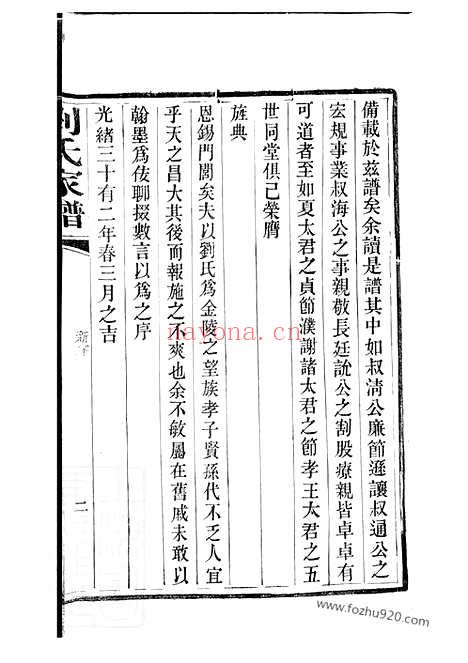 備載於茲譜矣余讀是譜其中如叔清公廉節遜讓叔通公之
宏規事業叔海公之事親敬長廷說公之割股療親皆卓卓有
可道者至如夏太君之貞節濮謝諸太君之節孝王太君之五
世同堂俱已榮膺
旌典
恩錫門閭矣夫以劉氏為金陵之望族孝子賢孫代不乏人宜
乎天之昌大其後而報施之不爽也余不敏屬在舊戚未敢以
翰墨為伎聊掇數言以為之序
光緒三十有二年春三月之吉
劉氏家譜
新序
二
nayona.cn
www.fozhu920.com